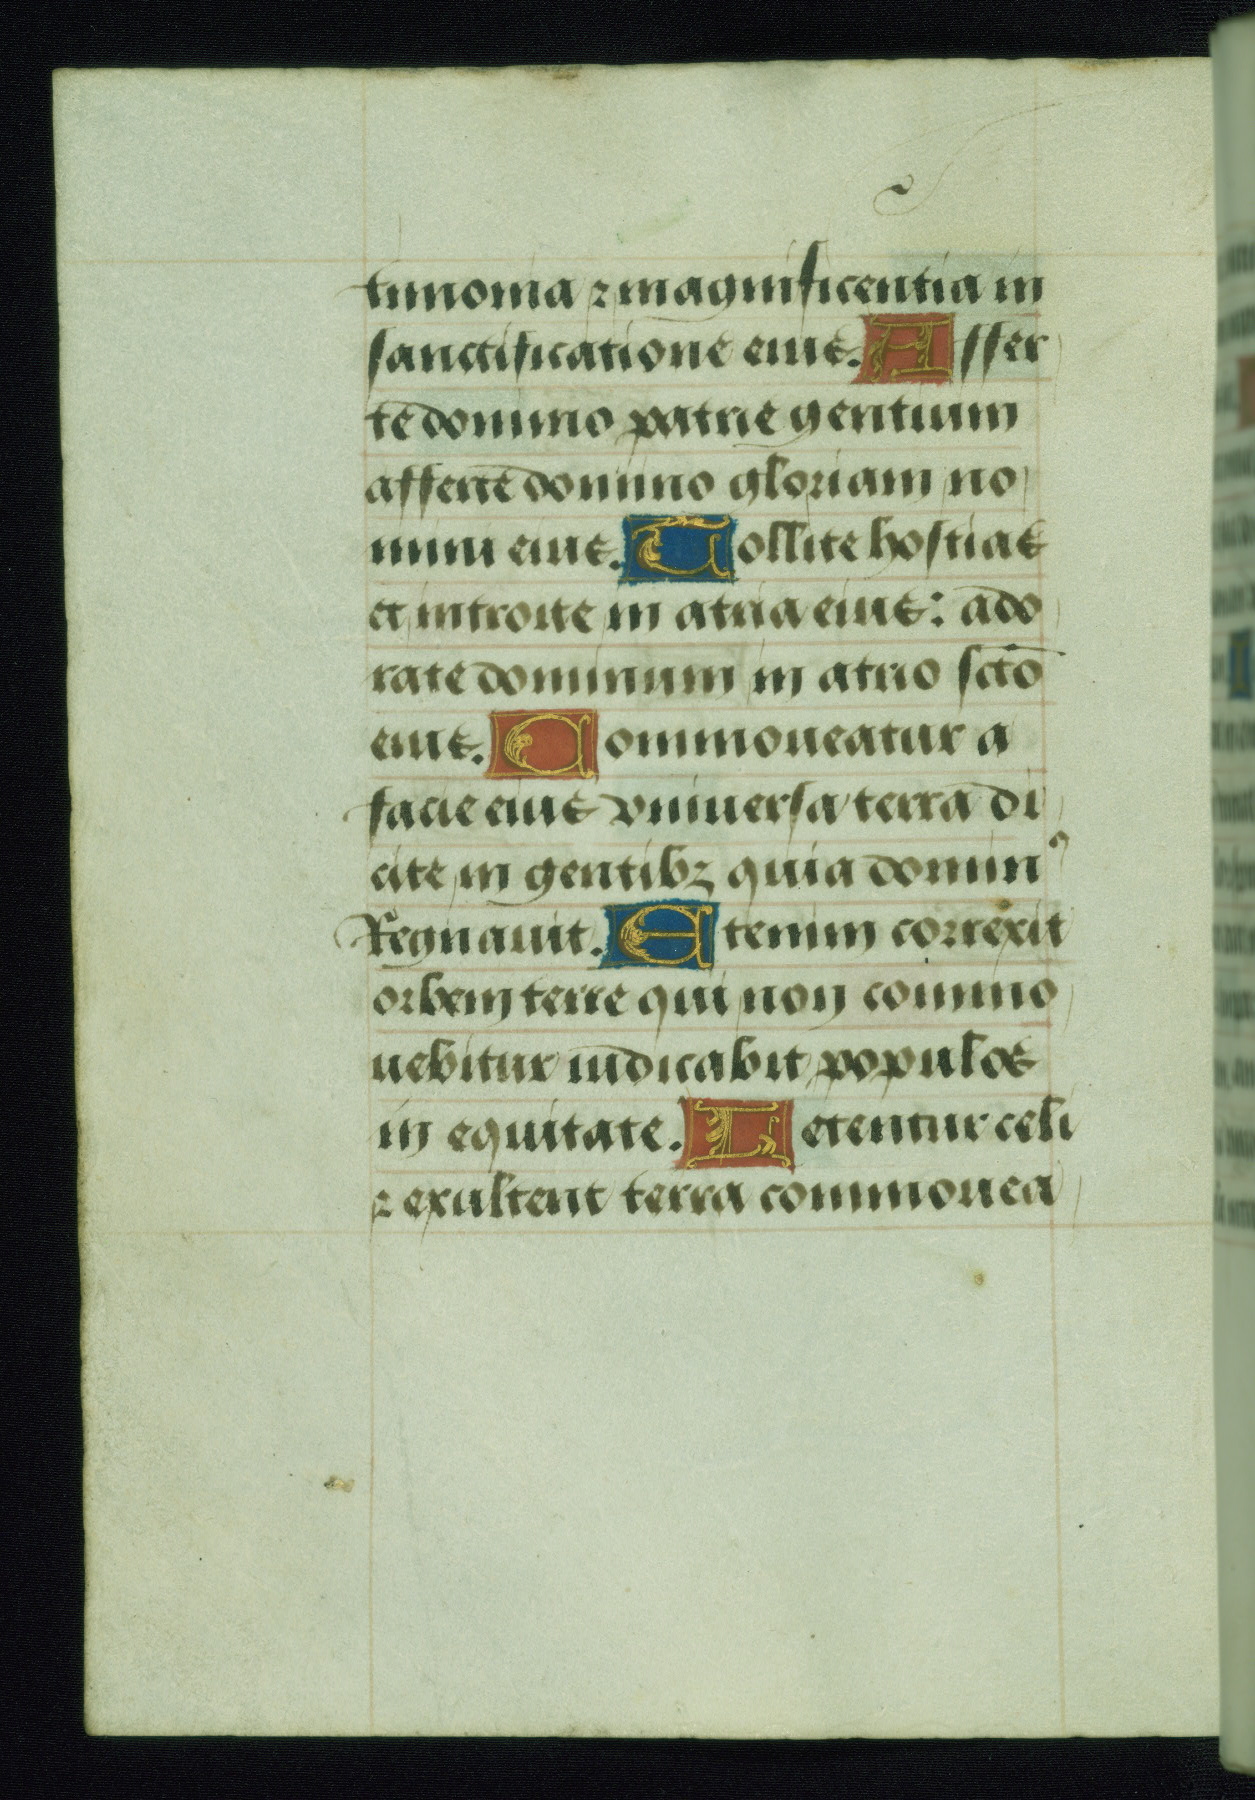 timonia ⁊ magnificentia in
sanctificatione eius. Affer
te domino patrie gentium
afferte domino gloriam no
mini eius. Tollite hostias
et introite in atria eius: ado
rate dominum in atrio scto̅
eius. Commoueatur a
facie eius vniuersa terra di
cite in gentibꝫ quia dominꝰ
Regnauit. Etenim correxit
orbem terre qui non commo
uebitur iudicabit populos
in equitate. Letentur celi
⁊ exultent terra commouea